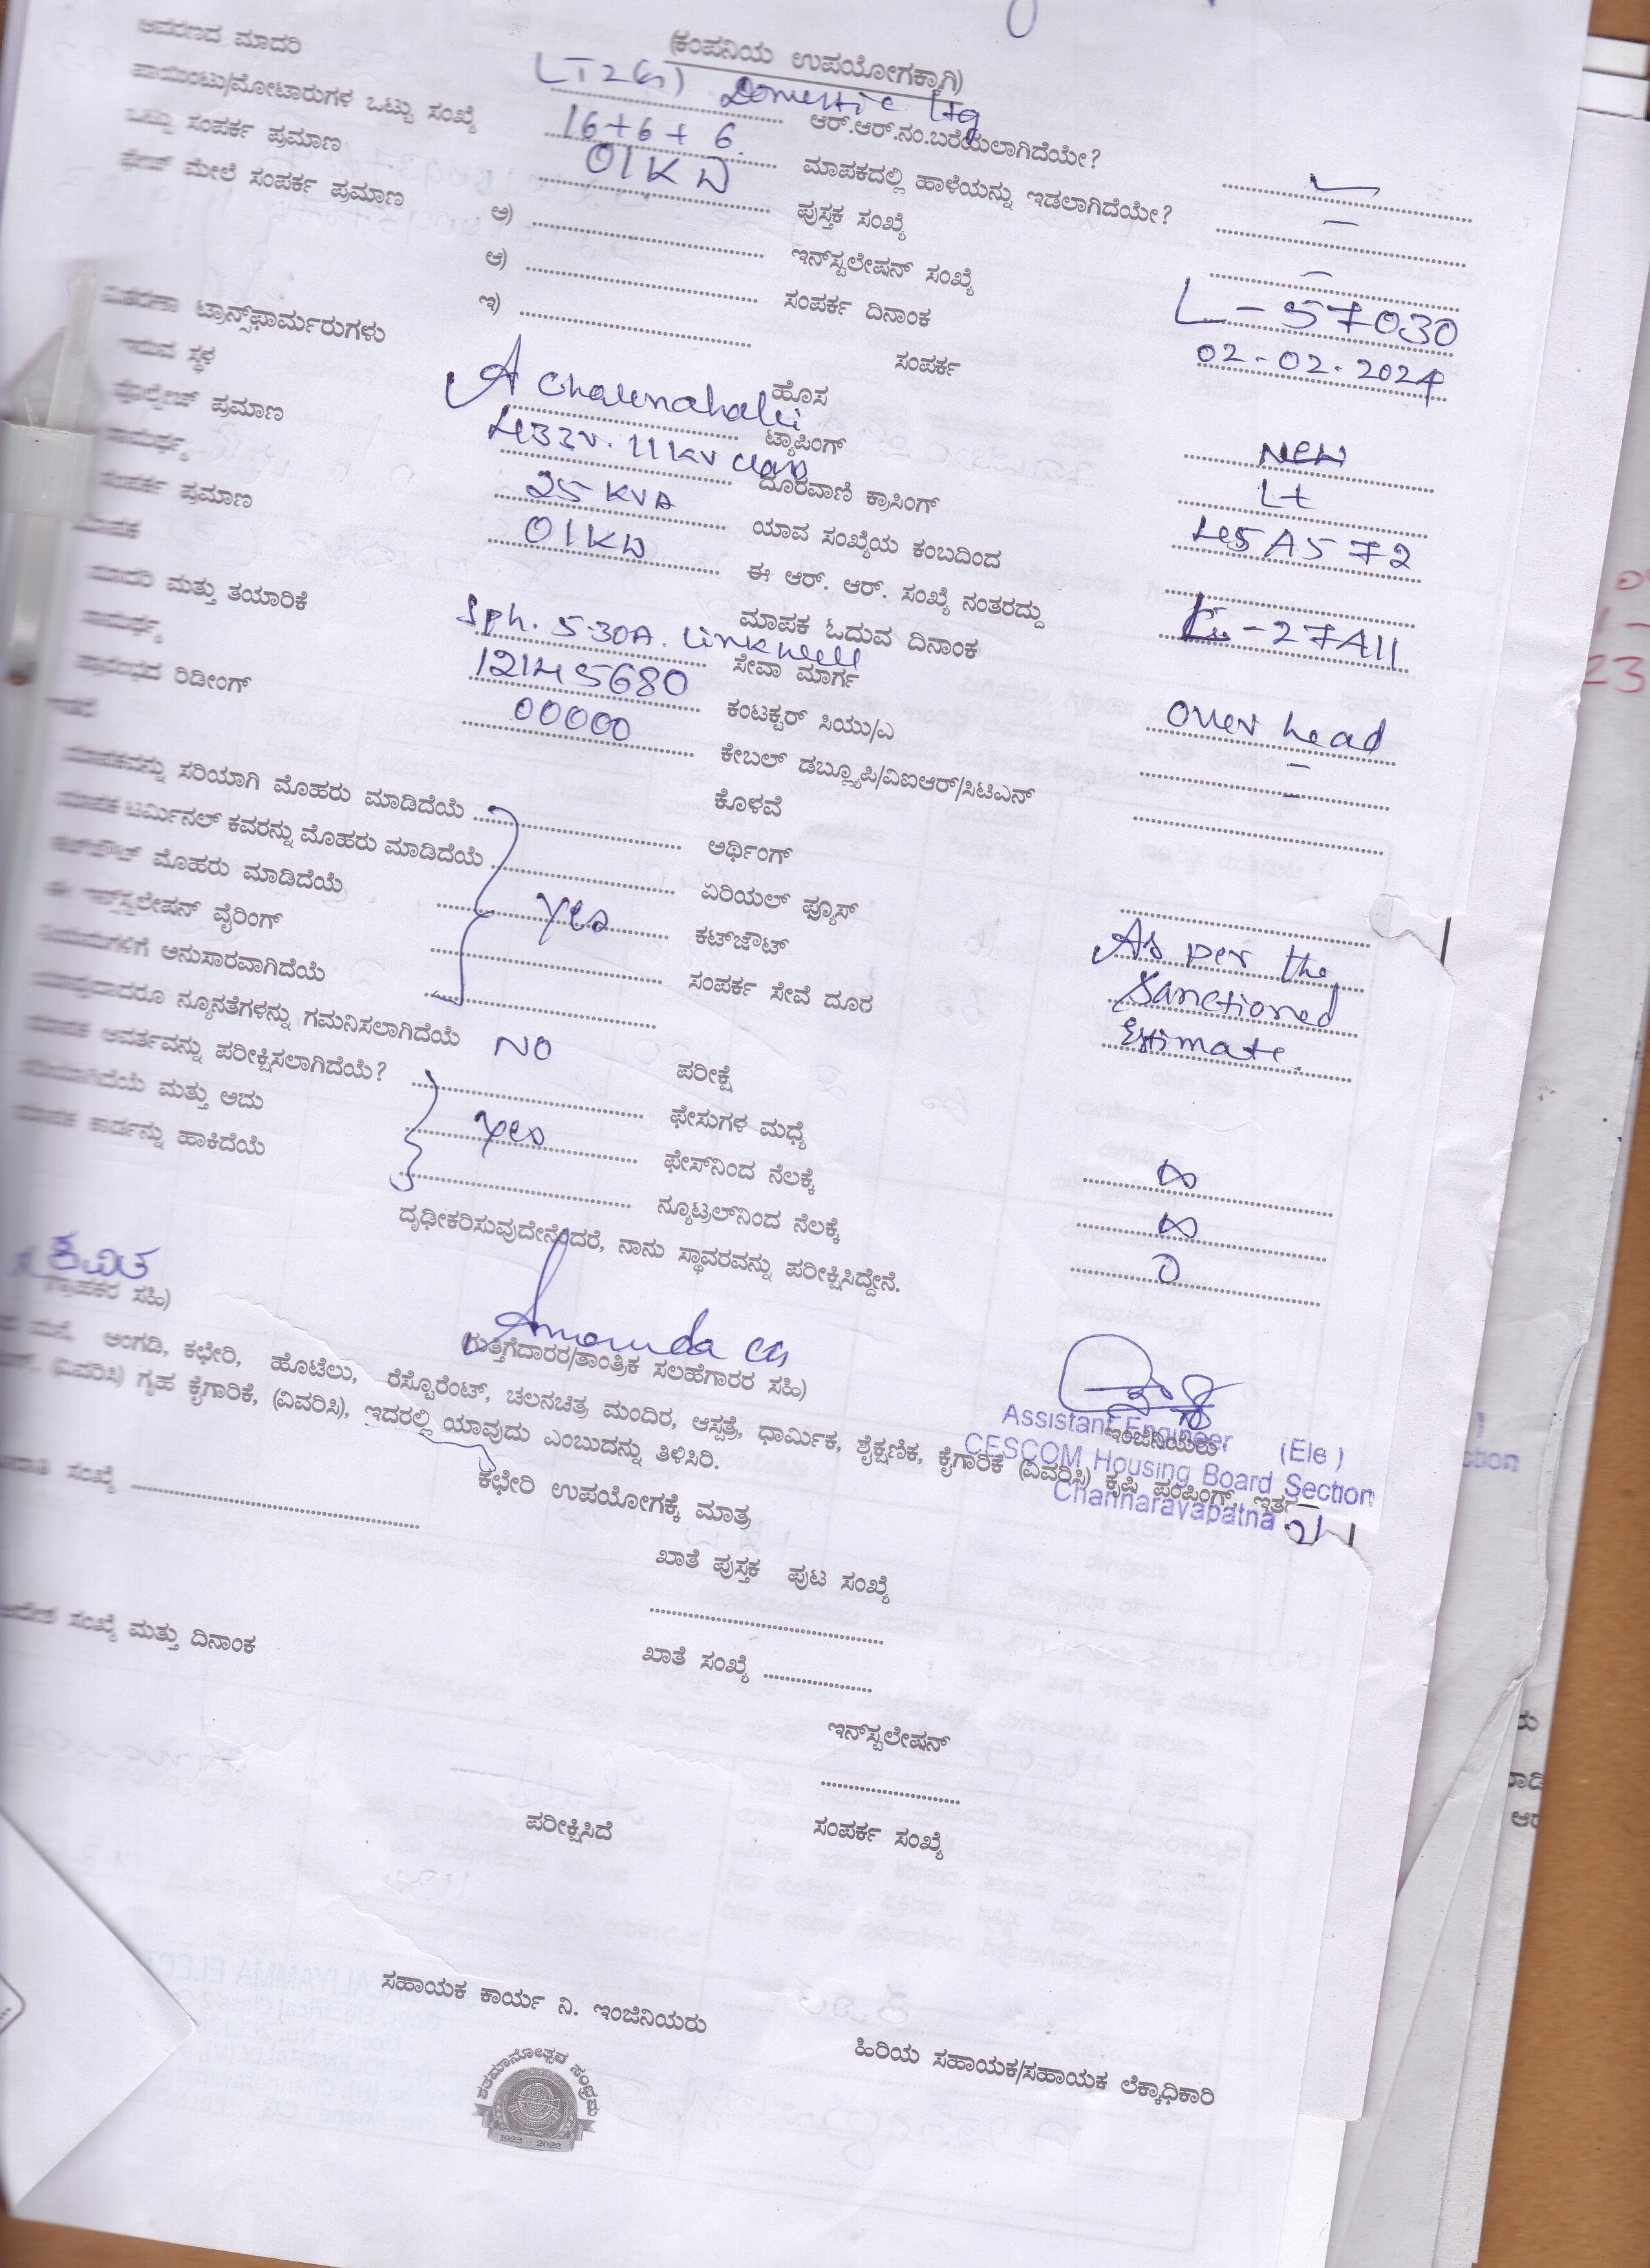 (ಕಂಪನಿಯ ಉಪಯೋಗಕ್ಕಾಗಿ)
ಆವರಣದ ಮಾದರಿ LT2(a) Domestic ltg ಆರ್.ಆರ್.ನಂ.ಬರೆಯಲಾಗಿದೆಯೇ?
ಪಾಯಿಂಟು/ಮೋಟಾರುಗಳ ಒಟ್ಟು ಸಂಖ್ಯೆ 16+6+6 ಮಾಪಕದಲ್ಲಿ ಹಾಳೆಯನ್ನು ಇಡಲಾಗಿದೆಯೇ? –
ಒಟ್ಟು ಸಂಪರ್ಕ ಪ್ರಮಾಣ 01KW ಪುಸ್ತಕ ಸಂಖ್ಯೆ –
ಫೇಸ್ ಮೇಲೆ ಸಂಪರ್ಕ ಪ್ರಮಾಣ ಅ) ಇನ್‌ಸ್ಟಲೇಷನ್ ಸಂಖ್ಯೆ L-57030
ಆ) ಸಂಪರ್ಕ ದಿನಾಂಕ 02-02-2024
ಇ) ಸಂಪರ್ಕ
ವಿತರಣಾ ಟ್ರಾನ್ಸ್‌ಫಾರ್ಮರುಗಳು
ಇರುವ ಸ್ಥಳ A Cholenahalli ಹೊಸ NEW
ವೋಲ್ಟೇಜ್ ಪ್ರಮಾಣ 433v. 11kv class ಟ್ಯಾಪಿಂಗ್ Lt
ಸಾಮರ್ಥ್ಯ 25 KVA ದೂರವಾಣಿ ಕ್ರಾಸಿಂಗ್
ಸಂಪರ್ಕ ಪ್ರಮಾಣ 01KW ಯಾವ ಸಂಖ್ಯೆಯ ಕಂಬದಿಂದ
ಮಾಪಕ ಈ ಆರ್. ಆರ್. ಸಂಖ್ಯೆ ನಂತರದ್ದು
ಮಾಪಕ ಓದುವ ದಿನಾಂಕ
ಮಾದರಿ ಮತ್ತು ತಯಾರಿಕೆ 1ph. 5-30A. Linkwell ಸೇವಾ ಮಾರ್ಗ over head
ಸಾಮರ್ಥ್ಯ 12145680 ಕಂಟಕ್ಟರ್ ಸಿಯು/ಎ –
ಪ್ರಾರಂಭದ ರಿಡೀಂಗ್ 00000 ಕೇಬಲ್ ಡಬ್ಲ್ಯೂಪಿ/ವಿಐಆರ್/ಸಿಟಿಎನ್ –
ಕೊಳವೆ
ಮಾಪಕವನ್ನು ಸರಿಯಾಗಿ ಮೊಹರು ಮಾಡಿದೆಯೆ ಅರ್ಥಿಂಗ್
ಮಾಪಕ ಟರ್ಮಿನಲ್ ಕವರನ್ನು ಮೊಹರು ಮಾಡಿದೆಯೆ ಏರಿಯಲ್ ಫ್ಯೂಸ್
ಕಟ್‌ಔಟ್ ಮೊಹರು ಮಾಡಿದೆಯೆ Yes ಕಟ್‌ಔಟ್ As per the
ಈ ಇನ್‌ಸ್ಟಲೇಷನ್ ವೈರಿಂಗ್ ಸಂಪರ್ಕ ಸೇವೆ ದೂರ Sanctioned
ನಿಯಮಗಳಿಗೆ ಅನುಸಾರವಾಗಿದೆಯೆ Estimate.
ಯಾವುದಾದರೂ ನ್ಯೂನತೆಗಳನ್ನು ಗಮನಿಸಲಾಗಿದೆಯೆ NO ಪರೀಕ್ಷೆ
ಮಾಪಕ ಆವರ್ತವನ್ನು ಪರೀಕ್ಷಿಸಲಾಗಿದೆಯೆ? ಫೇಸುಗಳ ಮಧ್ಯೆ ∞
ಸರಿಯಾಗಿದೆಯೆ ಮತ್ತು ಅದು Yes ಫೇಸ್‌ನಿಂದ ನೆಲಕ್ಕೆ ∞
ಮಾಪಕ ಕಾರ್ಡನ್ನು ಹಾಕಿದೆಯೆ ನ್ಯೂಟ್ರಲ್‌ನಿಂದ ನೆಲಕ್ಕೆ 0
ದೃಢೀಕರಿಸುವುದೇನೆಂದರೆ, ನಾನು ಸ್ಥಾವರವನ್ನು ಪರೀಕ್ಷಿಸಿದ್ದೇನೆ.
ಕವಿತ
(ಗ್ರಾಹಕರ ಸಹಿ)
(ಗುತ್ತಿಗೆದಾರರ/ತಾಂತ್ರಿಕ ಸಲಹೆಗಾರರ ಸಹಿ)
ಇಂಜಿನಿಯರು
Assistant Engineer (Ele)
CESCOM Housing Board Section
Channarayapatna
ಮನೆ, ಅಂಗಡಿ, ಕಛೇರಿ, ಹೊಟೆಲು, ರೆಸ್ಟೊರೆಂಟ್, ಚಲನಚಿತ್ರ ಮಂದಿರ, ಆಸ್ಪತ್ರೆ, ಧಾರ್ಮಿಕ, ಶೈಕ್ಷಣಿಕ, ಕೈಗಾರಿಕೆ (ವಿವರಿಸಿ) ಕೃಷಿ ಪಂಪಿಂಗ್, ಇತರ
(ವಿವರಿಸಿ) ಗೃಹ ಕೈಗಾರಿಕೆ, (ವಿವರಿಸಿ), ಇದರಲ್ಲಿ ಯಾವುದು ಎಂಬುದನ್ನು ತಿಳಿಸಿರಿ.
ಕಛೇರಿ ಉಪಯೋಗಕ್ಕೆ ಮಾತ್ರ
ಸಂಖ್ಯೆ
ಖಾತೆ ಪುಸ್ತಕ ಪುಟ ಸಂಖ್ಯೆ
ಆದೇಶ ಸಂಖ್ಯೆ ಮತ್ತು ದಿನಾಂಕ
ಖಾತೆ ಸಂಖ್ಯೆ
ಇನ್‌ಸ್ಟಲೇಷನ್
ಪರೀಕ್ಷಿಸಿದೆ ಸಂಪರ್ಕ ಸಂಖ್ಯೆ
ಸಹಾಯಕ ಕಾರ್ಯ ನಿ. ಇಂಜಿನಿಯರು
ಹಿರಿಯ ಸಹಾಯಕ/ಸಹಾಯಕ ಲೆಕ್ಕಾಧಿಕಾರಿ
ಶತಮಾನೋತ್ಸವ ಸಂಭ್ರಮ
1922 - 2022